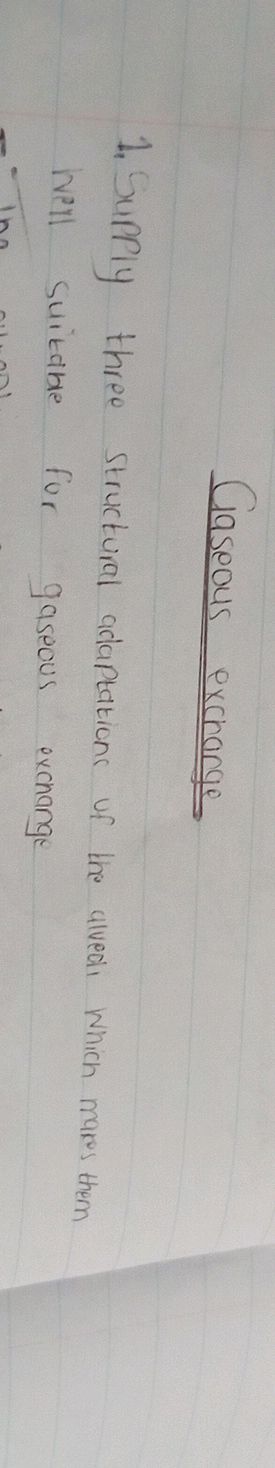 Gaseous exchange
1. Supply three structural adaptations of the alveoli which makes them
well suitable for gaseous exchange